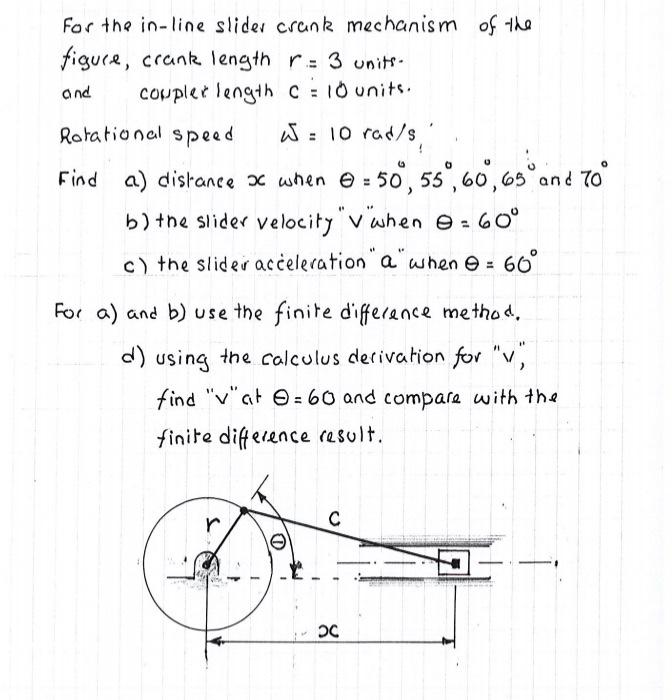 For the in-line slider crank mechanism of the
figure, crank length r = 3 units.
and coupler length c = 10 units.
Rotational speed ω = 10 rad/s.
Find a) distance x when θ = 50°, 55°, 60°, 65° and 70°
b) the slider velocity "v" when θ = 60°
c) the slider acceleration "a" when θ = 60°
For a) and b) use the finite difference method.
d) using the calculus derivation for "v",
find "v" at θ = 60 and compare with the
finite difference result.
r
c
θ
x